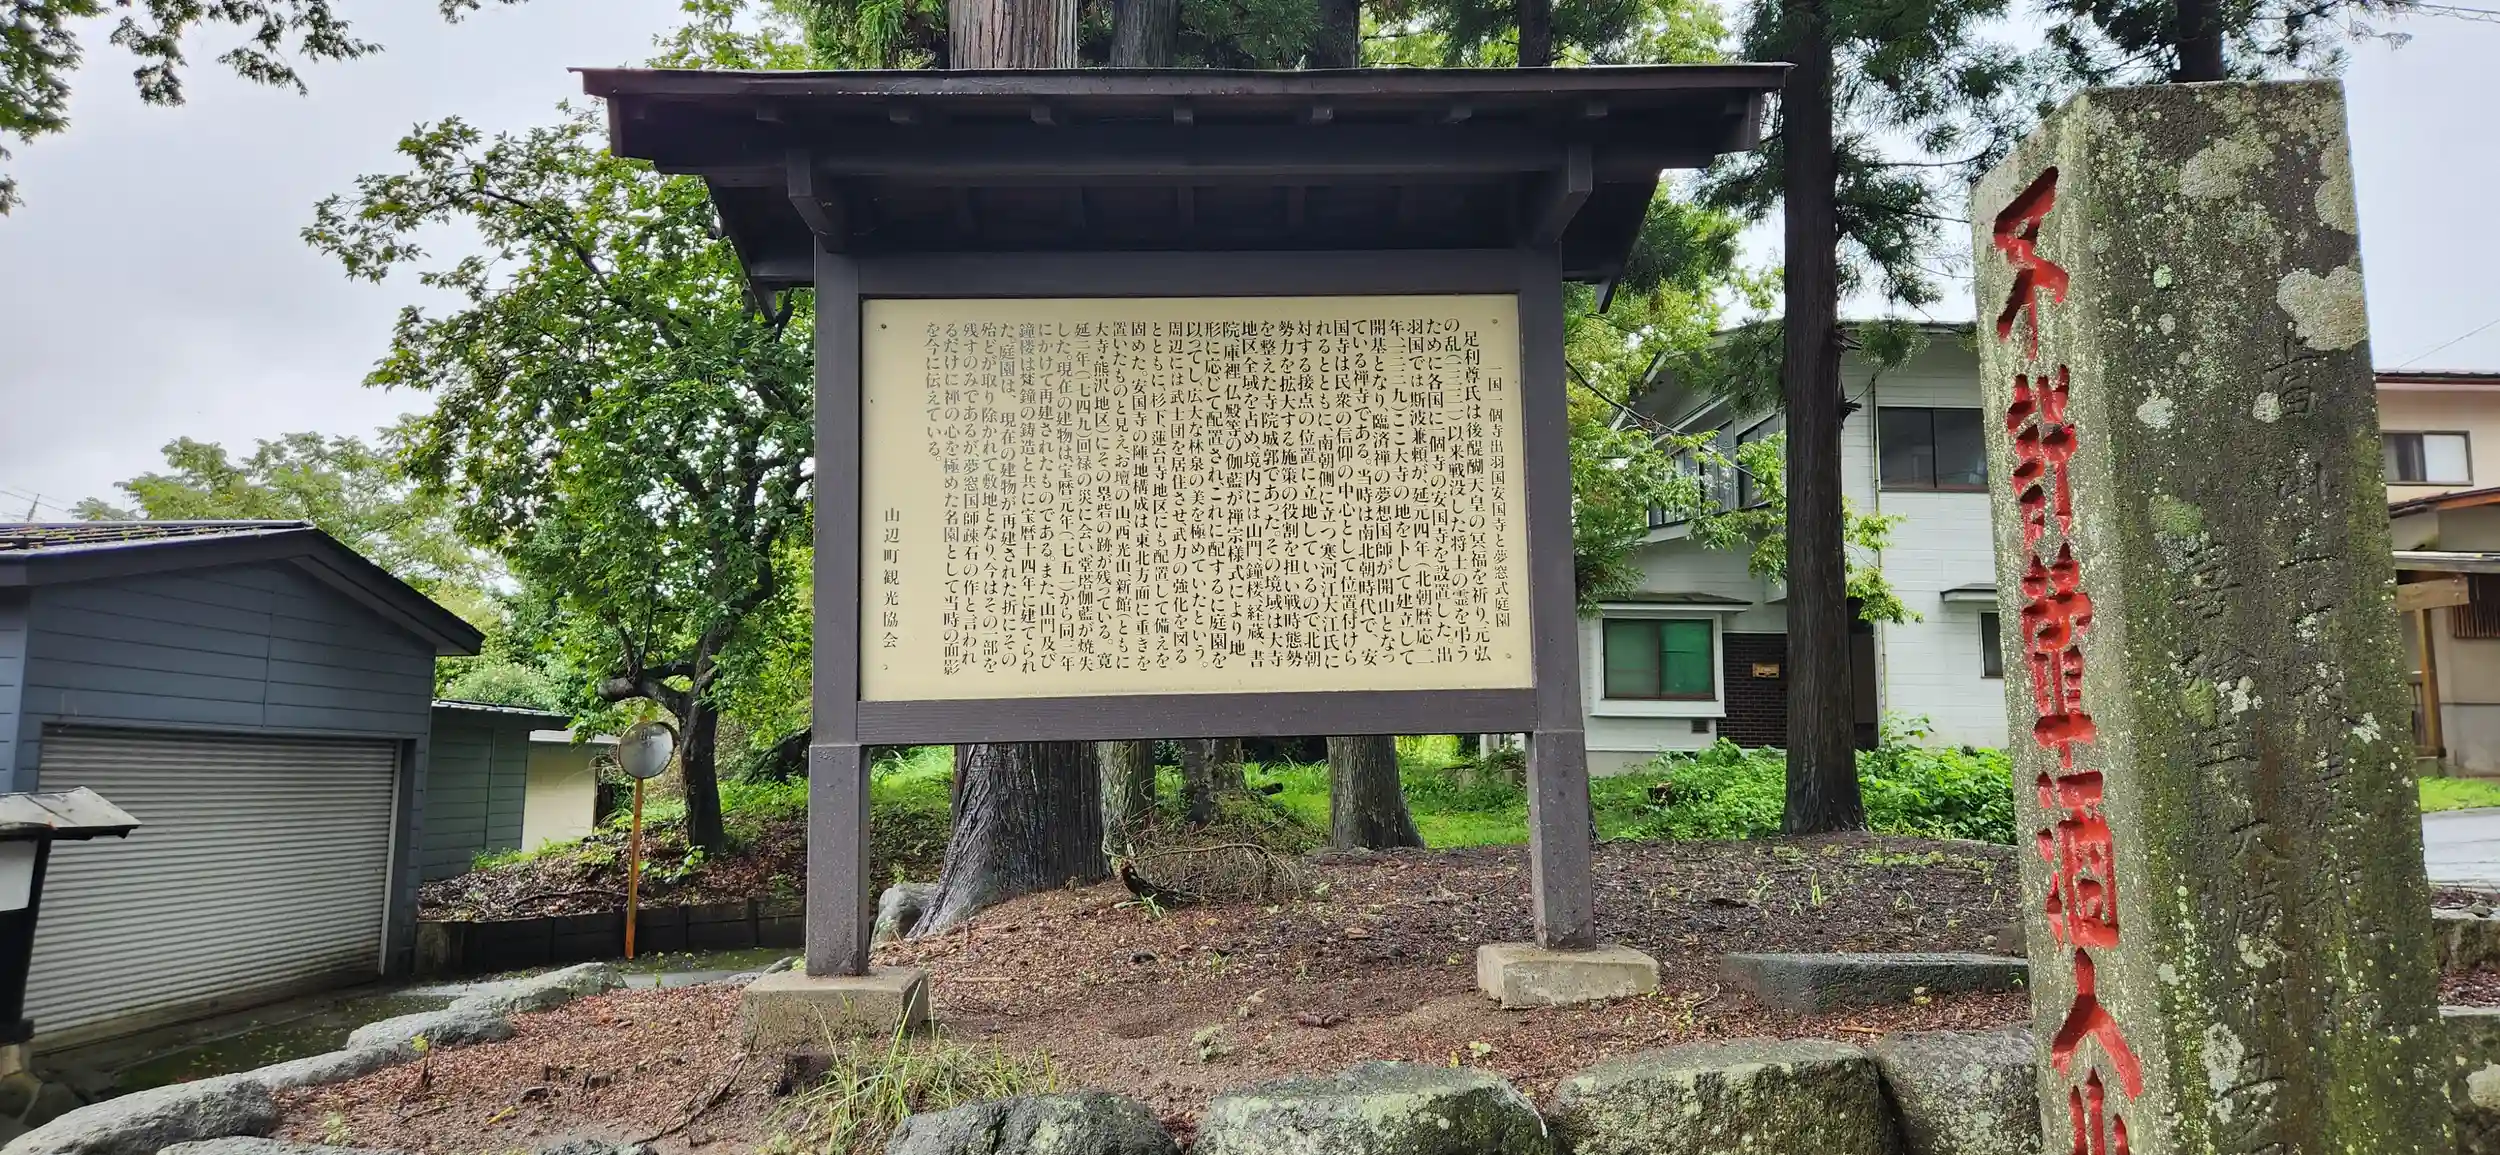 一国一個寺出羽国安国寺と夢窓式庭園
足利尊氏は後醍醐天皇の冥福を祈り、元弘
の乱(一三三一)以来戦没した将士の霊を弔う
ために各国に一個寺の安国寺を設置した。出
羽国では斯波兼頼が、延元四年(北朝暦応二
年、一三三九)ここ大寺の地を卜して建立して
開基となり、臨済禅の夢想国師が開山となっ
ている禅寺である。当時は南北朝時代で、安
国寺は民衆の信仰の中心として位置付けら
れるとともに、南朝側に立つ寒河江大江氏に
対する接点の位置に立地しているので、北朝
勢力を拡大する施策の役割を担い戦時態勢
を整えた寺院城郭であった。その境域は大寺
地区全域を占め、境内には山門、鐘楼、経蔵、書
院、庫裡、仏殿等の伽藍が禅宗様式により、地
形に応じて配置され、これに配するに庭園を
以ってし、広大な林泉の美を極めていたという。
周辺には武士団を居住させ、武力の強化を図る
とともに、杉下、蓮台寺地区にも配置して備えを
固めた。安国寺の陣地構成は東北方面に重きを
置いたものと見え、お壇の山、西光山、新館(ともに
大寺・熊沢地区)にその塁砦の跡が残っている。寛
延二年(一七四九)回禄の災に会い堂塔伽藍が焼失
した。現在の建物は宝暦元年(一七五一)から同三年
にかけて再建されたものである。また、山門及び
鐘楼は梵鐘の鋳造と共に宝暦十四年に建てられ
た。庭園は、現在の建物が再建された折にその
殆どが取り除かれて敷地となり、今はその一部を
残すのみであるが、夢窓国師疎石の作と言われ
るだけに禅の心を極めた名園として当時の面影
を今に伝えている。
山辺町観光協会
不許葷酒入山